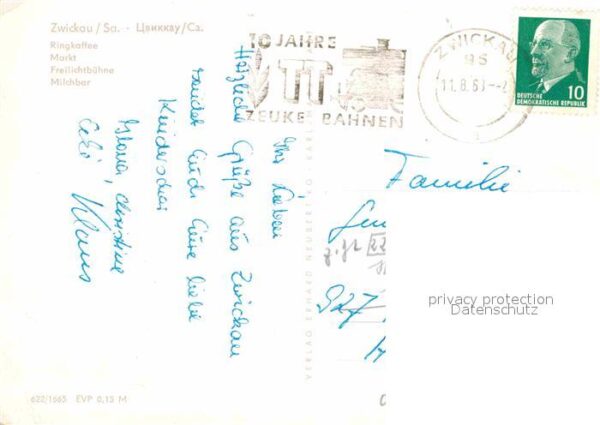 Zwickau / Sa. · Цвиккау/Са.
Ringkaffee
Markt
Freilichtbühne
Milchbar
10 JAHRE
TT
ZEUKE BAHNEN
ZWICKAU
95
11.8.6
DEUTSCHE
DEMOKRATISCHE REPUBLIK
10
Ihr Lieben
Herzliche Grüße aus Zwickau
sendet Euch Eure liebe
Kinderschar
Christine
Klaus
Familie
927
privacy protection
Datenschutz
VERLAG ERHARD NEUBERT KG KARL
622/1665 EVP 0,15 M